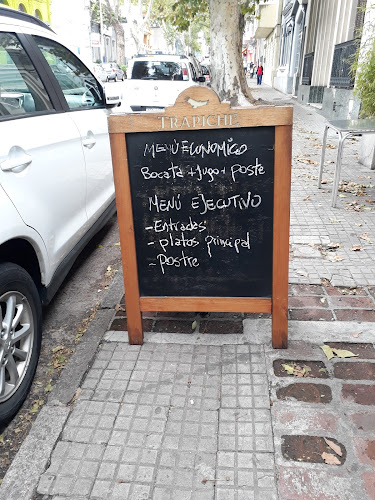 TRAPICHE
MENÚ ECONOMICO
Bocata + Jugo + Poste
MENÚ EJECUTIVO
- Entradas
- platos principal
- Postre